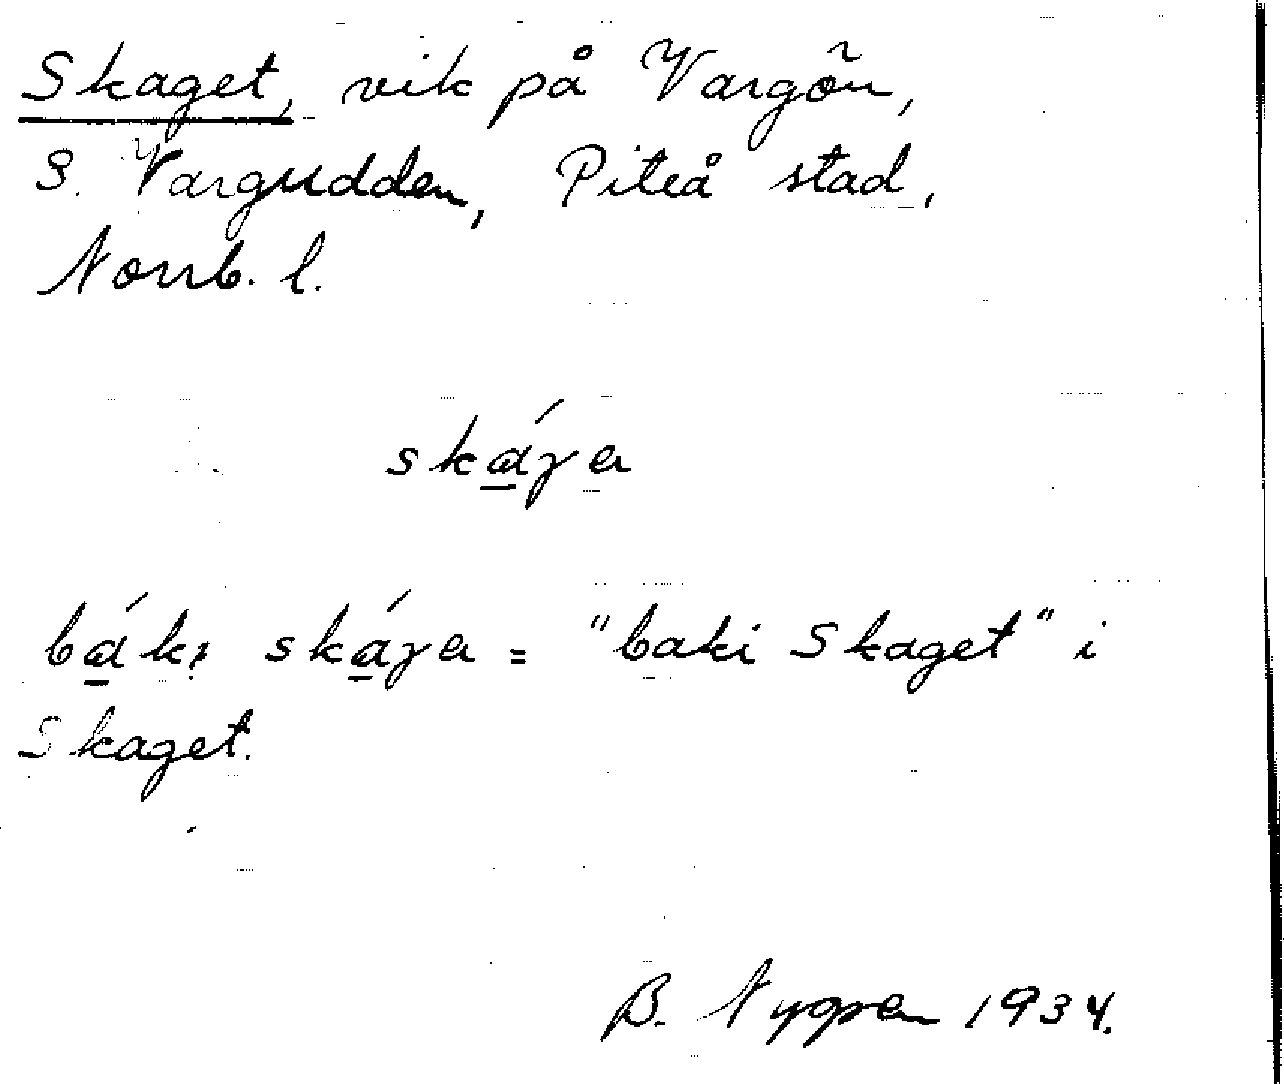 Skaget, vik på Vargön,
S. Vargudden, Piteå stad,
Norrb. l.
skáɣa
bákı skáɣa = "baki Skaget" i
Skaget.
B. Nygren 1934.